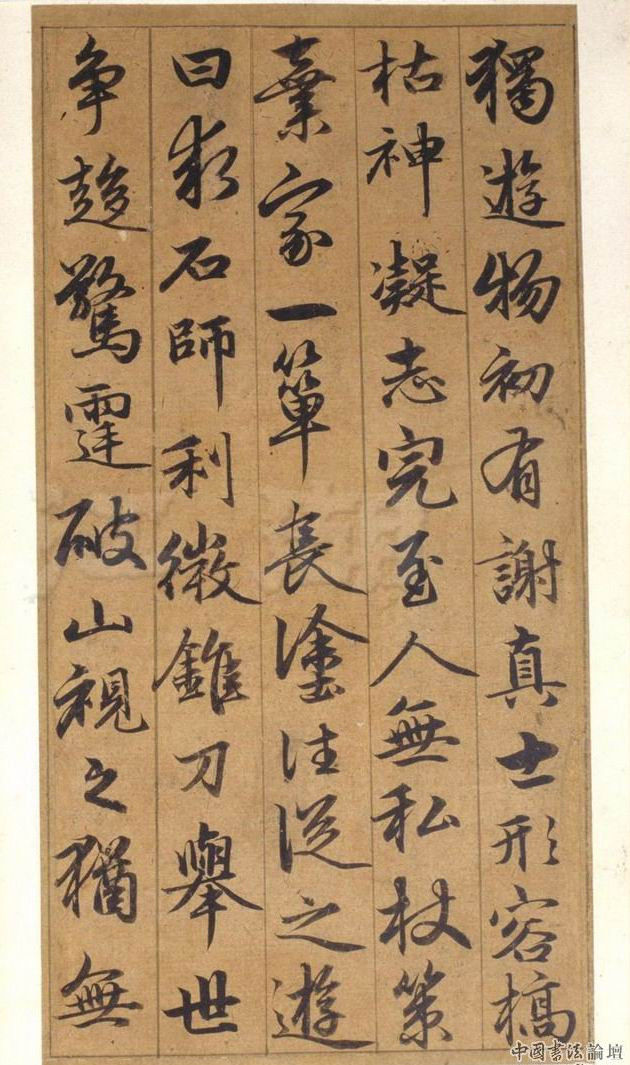 獨遊物初有謝真士形容槁
枯神凝志完至人無私杖策
棄家一簞長塗往從之遊
曰求石師利微錐刀舉世
爭趍驚霆破山視之猶無
中國書法論壇